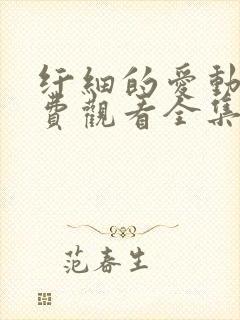 纡細的愛動
費觀看全集
范春生